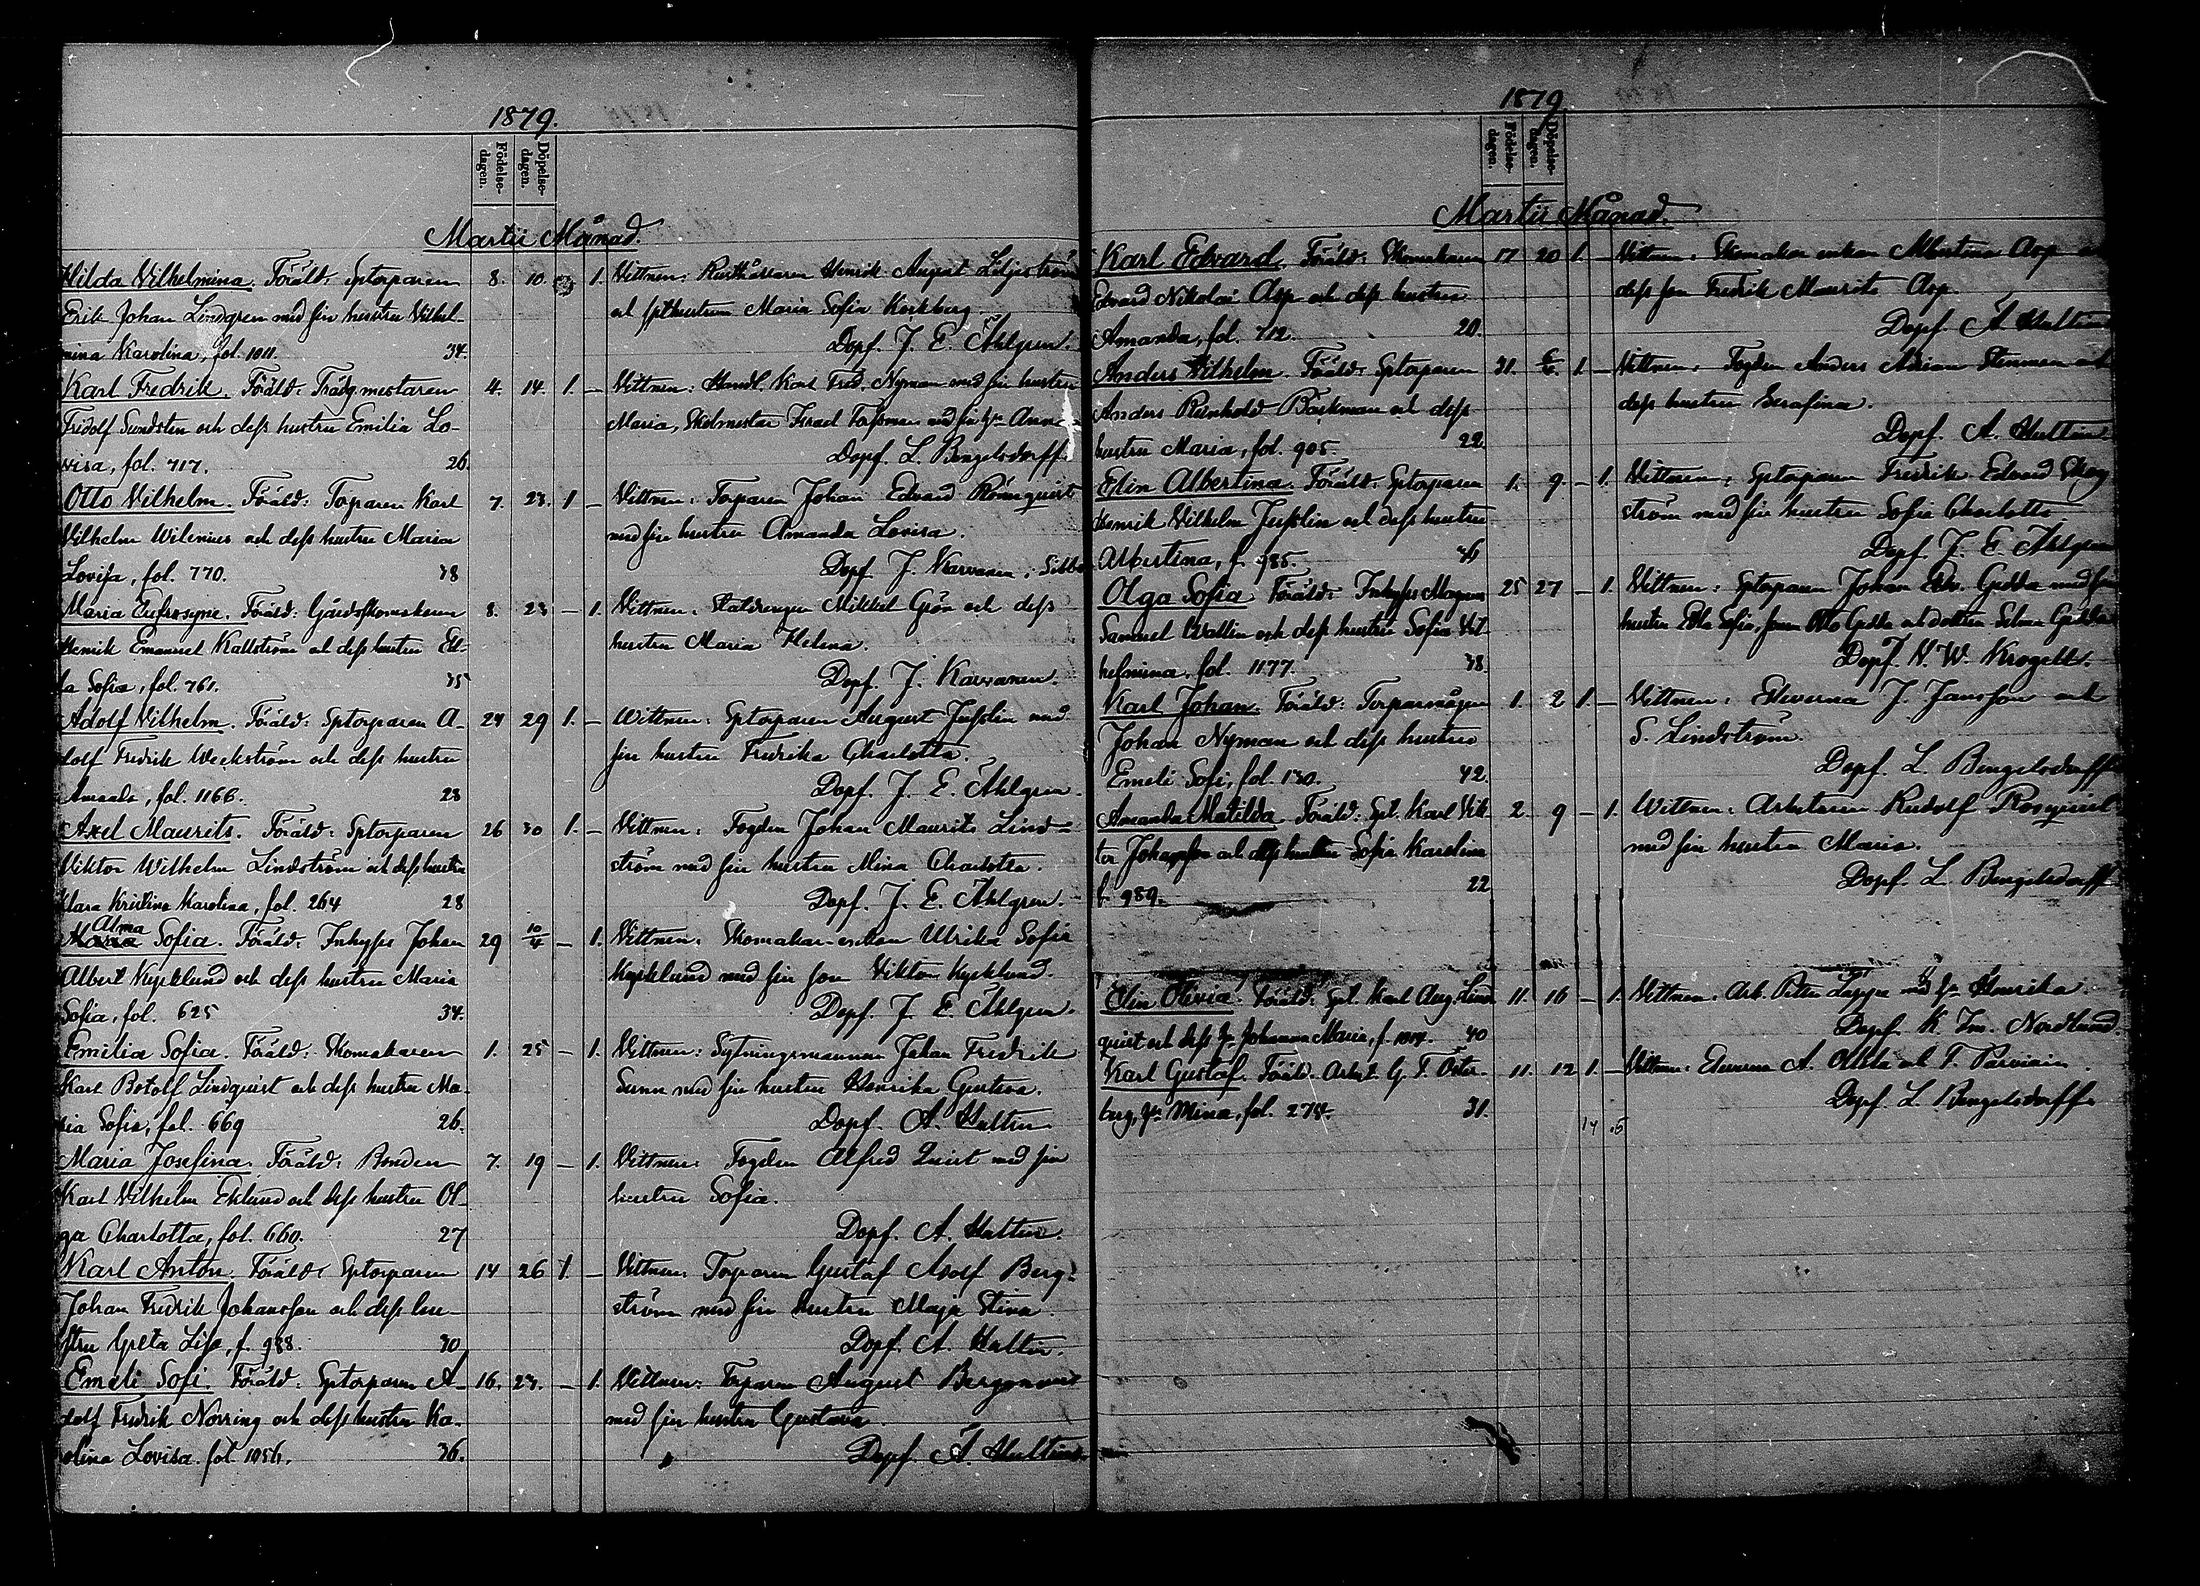 1879.
Födelse-dagen.
Döpelse-dagen.
Martii Månad.
Hilda Vilhelmina. Föräld: Sptorparen 8. 10. 1. Vittnen: Henrik August Liljeström
Erik Johan Lindgren med sin hustru Vilhel- och Maria Sofia
mina Karolina, fol. 1011. 34. Döpf. J. E. Ahlgren.
Karl Fredrik. Föräld: Trädg.mestaren 4. 14. 1. – Vittnen: Handl. Karl Fred. Nyman med sin hustru
Fridolf Sundsten och dess hustru Emilia Lo- Maria,
visa, fol. 717. 26. Döpf. L. Bengelsdorff.
Otto Vilhelm. Föräld: Torparen Karl 7. 23. 1 – Vittnen: Torparen Johan Edvard Rönnquist
Vilhelm Wilenius och dess hustru Maria med sin hustru Amanda Lovisa.
Lovisa, fol. 770. 38 Döpf. J. Karvanen, Sibbo
Maria Eufrosyne. Föräld: Gårdsskomakaren 8. 23 – 1. Vittnen: Mikkel Grön och dess
Henrik Emanuel Kallström och dess hustru Ed- hustru Maria Helena.
la Sofia, fol. 761. 35 Döpf. J. Karvanen.
Adolf Vilhelm. Föräld: Sptorparen A- 24 29 1. – Wittnen: Sptorparen August Jusslin med
dolf Fredrik Weckström och dess hustru sin hustru Fredrika Charlotta.
Amanda, fol. 1166. 28 Döpf. J. E. Ahlgren.
Axel Maurits. Föräld: Sptorparen 26 30 1. – Vittnen: Fogden Johan Maurits Lind-
Viktor Wilhelm Lindström och dess hustru ström med sin hustru Mina Charlotta.
Klara Kristina Karolina, fol. 264 28 Döpf. J. E. Ahlgren.
Alma
Maria Sofia. Föräld: Inhyses Johan 29 10/4 – 1. Vittnen: Skomakar-enkan Ulrika Sofia
Albert Kycklund och dess hustru Maria Kycklund med sin son Viktor Kycklund.
Sofia, fol. 625 34. Döpf. J. E. Ahlgren.
Emilia Sofia. Föräld: Skomakaren 1. 25 – 1. Vittnen: Sytningsmannen Johan Fredrik
Karl Botolf Lindquist och dess hustru Ma- Sunn med sin hustru Henrika Gustava.
ria Sofia, fol. 669 26. Döpf. A. Hultin
Maria Josefina. Föräld: Bonden 7. 19 – 1. Vittnen: Fogden Alfred Quist med sin
Karl Vilhelm Eklund och dess hustru Ol- hustru Sofia.
ga Charlotta, fol. 660. 27 Döpf. A. Hultin.
Karl Anton. Föräld: Sptorparen 14 26 1. – Vittnen: Torparen Gustaf Adolf Berg-
Johan Fredrik Johansson och dess hu- ström med sin hustru Maja Stina.
stru Greta Lisa, f. 988. 30 Döpf. A. Hultin.
Emeli Sofi. Föräld: Sptorparen A- 16. 23. – 1. Vittnen: Torparen August
dolf Fredrik Norring och dess hustru Ka- med sin hustru Gustava.
rolina Lovisa. fol. 1056. 36. Döpf. A. Hultin.
1879.
Födelse-dagen.
Döpelse-dagen.
Martii Månad.
Karl Edvard. Föräld: Skomakaren 17 20 1. – Vittnen: Skomakar enkan Albertina Asp och
Edvard Nikolai Asp och dess hustru dess son Fredrik Maurits Asp.
Amanda, fol. 712. 20. Döpf. A. Hultin
Anders Vilhelm. Föräld: Sptorparen 31. 6/6. 1. – Vittnen: Fogden Anders Adrian Stenman och
Anders Reinhold Bäckman och dess dess hustru Serafina.
hustru Maria, fol. 905. 22. Döpf. A. Hultin.
Elin Albertina. Föräld: Sptorparen 1. 9. – 1. Vittnen: Sptorparen Fredrik Edvard Skog-
Henrik Vilhelm Jusslin och dess hustru ström med sin hustru Sofia Charlotta
Albertina, f. 985. 36 Döpf. J. E. Ahlgren
Olga Sofia. Föräld: Inhyses Magnus 25 27 – 1. Vittnen: Sptorparen Johan Edv. Gedda med sin
Samuel Wallin och dess hustru Sofia Vil- hustru Edla Sofia, sonen Otto Gedda och dottren Selma Gedda
helmina, fol. 1177. 38. Döpf. N. W. Krogell.
Karl Johan. Föräld: Torparmågen 1. 2 1. – Vittnen: Eleverna J. Jansson och
Johan Nyman och dess hustru S. Lindström.
Emeli Sofi, fol. 130. 42. Döpf. L. Bengelsdorff
Amanda Matilda. Föräld: Spt. Karl Vik- 2. 9 – 1. Vittnen: Arbetaren Rudolf Rosquist
tor Johansson och dess hustru Sofia Karolina med sin hustru Maria.
f. 989. 22 Döpf. L. Bengelsdorff
Elin Olivia. Föräld: Spt. Karl Aug. Lind- 11. 16 – 1. Vittnen: Arb. Petter Lappe med Henrika
quist och dess Johanna Maria, f. 1014. 40 Döpf. K. Im. Nordlund.
Karl Gustaf. Föräld. Arbet. G. F. Öster- 11. 12 1. – Vittnen: Eleverna A. och T. Parviain.
berg, Mina, fol. 274. 31. Döpf. L. Bengelsdorff.
14 .5